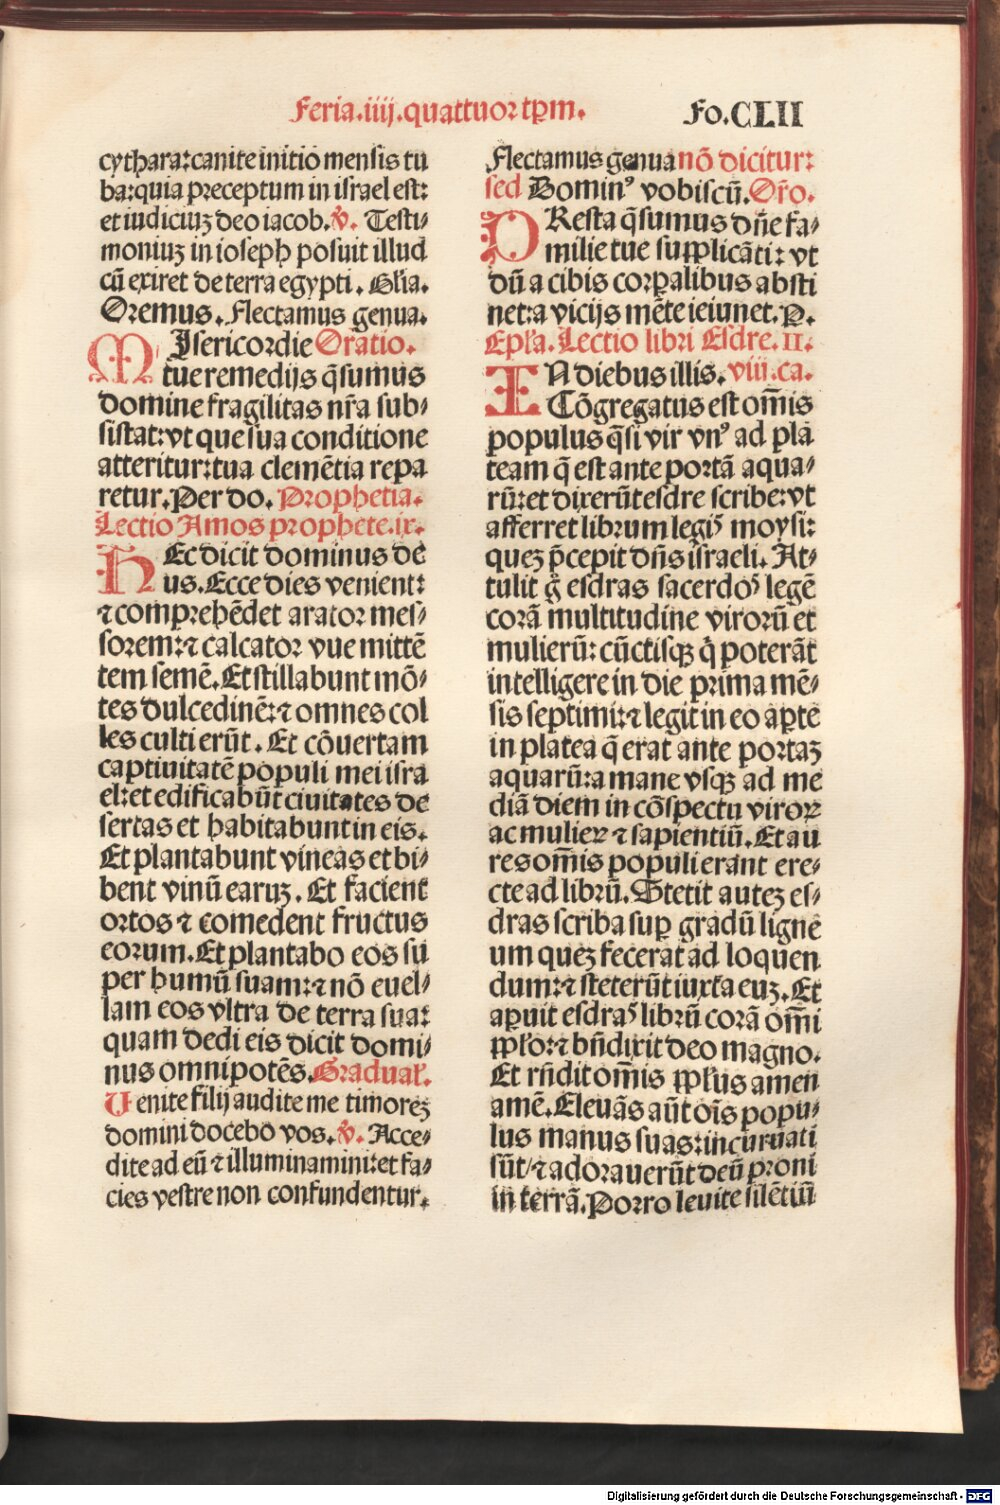 Feria.iiij.quattuor tp̄m.
Fo.CLII
cythara:canite initio mensis tu
ba:quia preceptum in israel est:
et iudiciuʒ deo iacob.v̄. Testi⸗
moniuʒ in ioseph posuit illud
cū exiret de terra egypti. Gl̄ia.
Oremus. Flectamus genua.
MIsericordie Oratio.
tue remedijs q̄sumus
domine fragilitas nr̄a sub⸗
sistat:vt que sua conditione
atteritur:tua clemētia repa
retur.Per do. Prophetia.
Lectio Amos prophete.ix.
HEc dicit dominus de
us.Ecce dies venient:
⁊ comprehēdet arator mes⸗
sorem:⁊ calcator vue mittē
tem semē.Et stillabunt mō⸗
tes dulcedinē:⁊ omnes col
les culti erūt. Et cōuertam
captiuitatē populi mei isra
el:et edificabūt ciuitates de
sertas et habitabunt in eis.
Et plantabunt vineas et bi⸗
bent vinū earuʒ. Et facient
ortos ⁊ comedent fructus
eorum.Et plantabo eos su
per humū suam:⁊ nō euel⸗
lam eos vltra de terra sua:
quam dedi eis dicit domi⸗
nus omnipotēs.Gradual̄.
Uenite filij audite me timoreʒ
domini docebo vos.v̄. Acce⸗
dite ad eū ⁊ illuminamini:et fa⸗
cies vestre non confundentur.
Flectamus genua nō dicitur:
sed Dominꝰ vobiscū.Or̄o.
PResta q̄sumus dn̄e fa⸗
milie tue supplicāti: vt
dū a cibis corꝑalibus absti
net:a vicijs mēte ieiunet.P.
Epl̄a.Lectio libri Esdre.II.
IN diebus illis. viii.ca.
Cōgregatus est om̄is
populus q̄si vir vnꝰ ad pla
team q̄ est ante portā aqua⸗
rū:et dixerūt esdre scribe:vt
afferret librum legis moysi:
queʒ p̄cepit dn̄s israeli. At⸗
tulit g̊ esdras sacerdos legē
corā multitudine virorū et
mulierū: cūctisqꝫ q̇ poterāt
intelligere in die prima mē⸗
sis septimi:⁊ legit in eo aꝑte
in platea q̄ erat ante portaʒ
aquarū:a mane vsqꝫ ad me
diā diem in cōspectu viroꝝ
ac mulieꝝ ⁊ sapientiū. Et au
res om̄is populi erant ere⸗
cte ad librū.Stetit auteʒ es⸗
dras scriba suꝑ gradū ligne
um queʒ fecerat ad loquen
dum:⁊ steterūt iuxta euʒ.Et
aꝑuit esdras librū corā om̄i
ppl̄o:⁊ bn̄dixit deo magno.
Et rn̄dit om̄is ppl̄us amen
amē.Eleuās aūt oīs popu⸗
lus manus suas:incuruati
sūt/⁊ adorauerūt deū proni
in terrā.Porro leuite silētiū
Digitalisierung gefördert durch die Deutsche Forschungsgemeinschaft - DFG